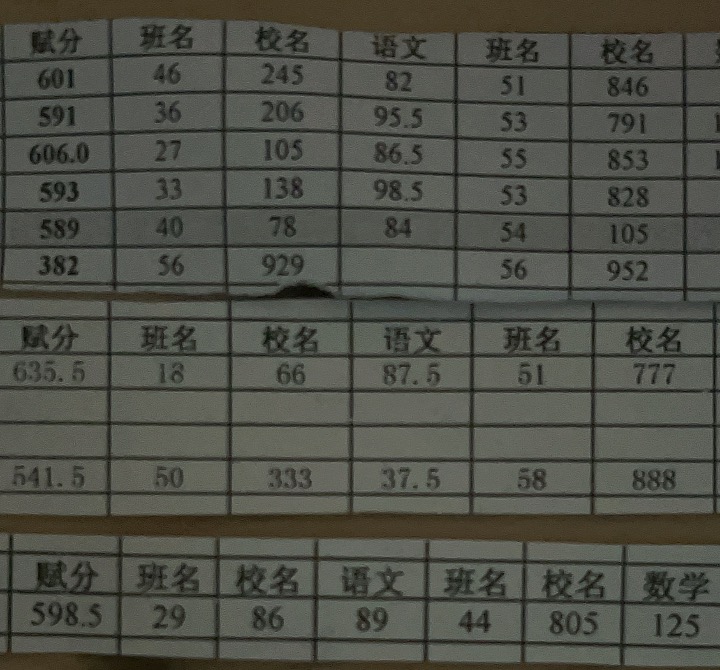 赋分 班名 校名 语文 班名 校名
601 46 245 82 51 846
591 36 206 95.5 53 791
606.0 27 105 86.5 55 853
593 33 138 98.5 53 828
589 40 78 84 54 105
382 56 929 56 952
赋分 班名 校名 语文 班名 校名
635.5 18 66 87.5 51 777
541.5 50 333 37.5 58 888
赋分 班名 校名 语文 班名 校名 数学
598.5 29 86 89 44 805 125